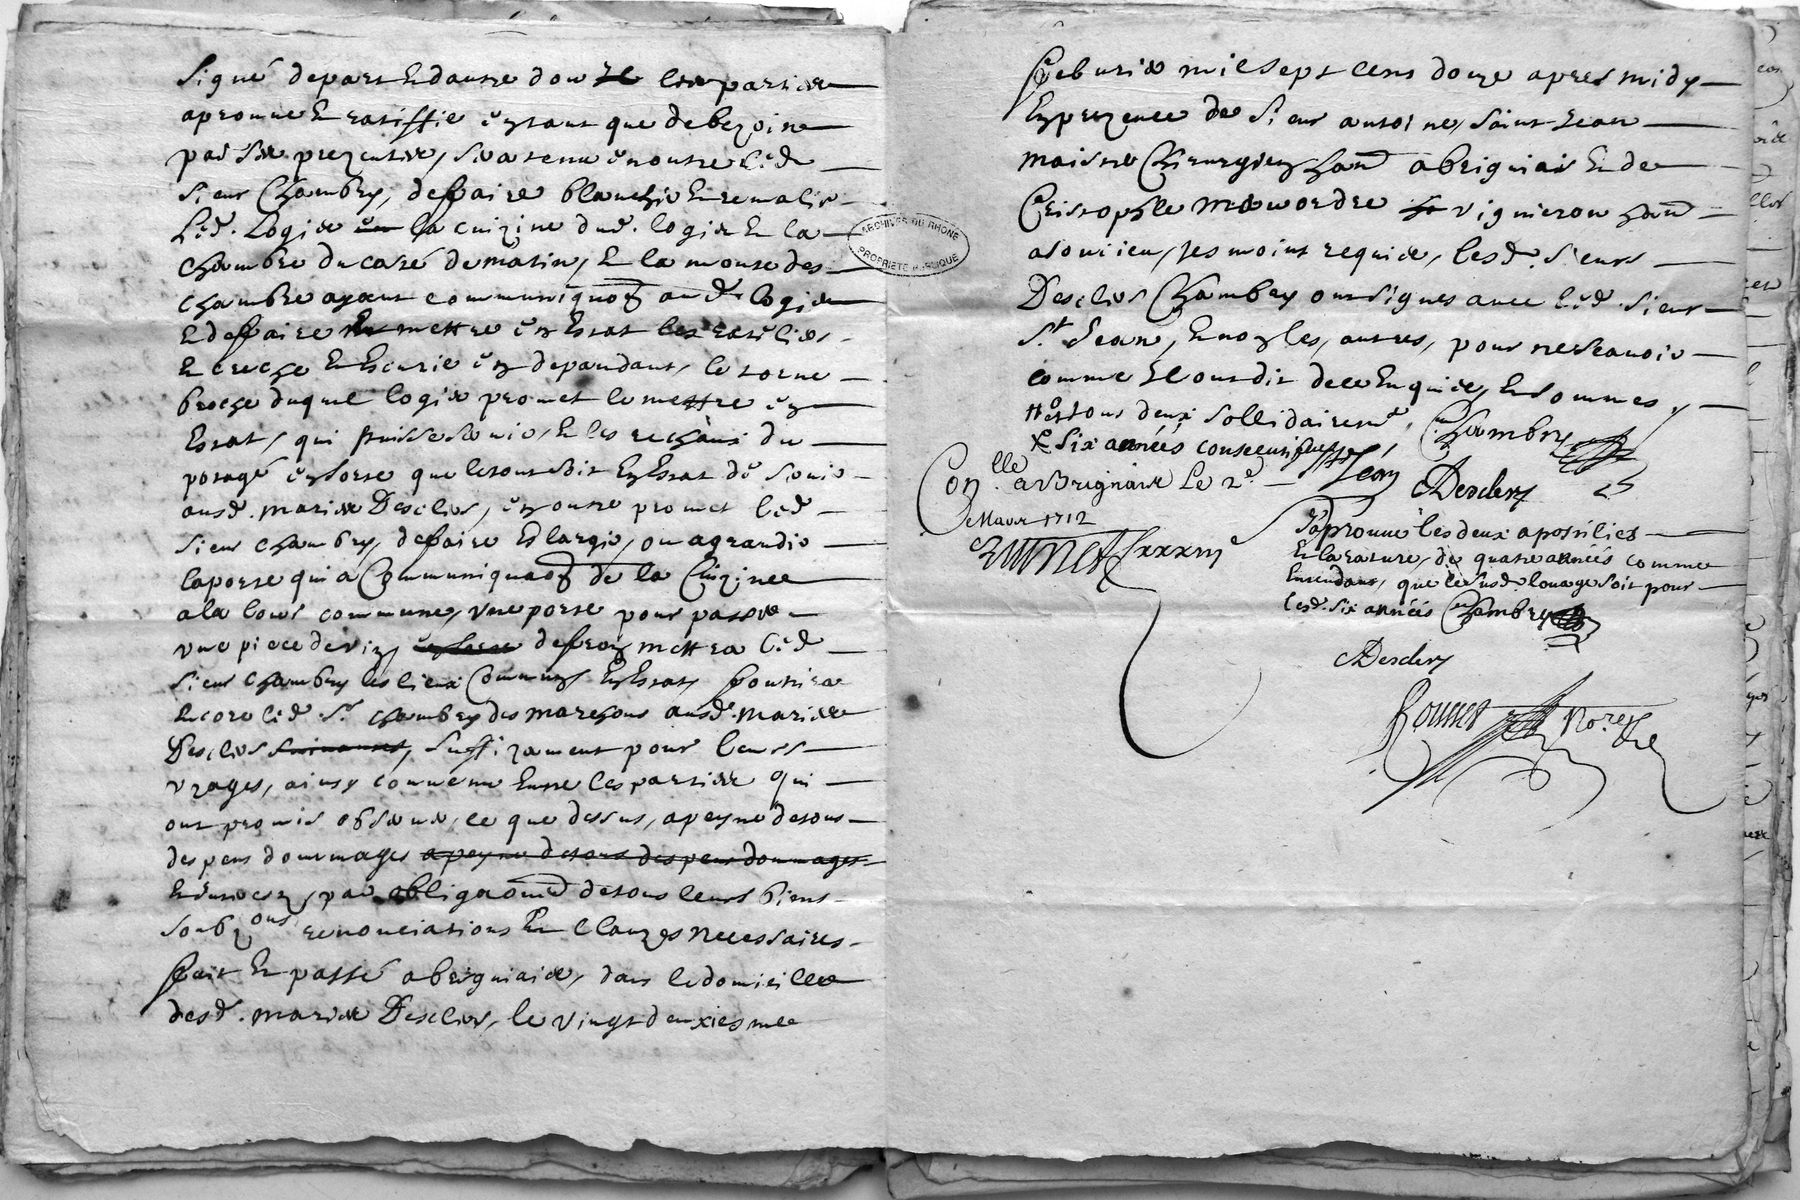 signé depart & dautre dou il les parties
aprouue & ratiffie eytant que de bezoin
par ses prezantes, sera tenu en outre led
sieur Chambry, de faire blanchir & remalir
led. logis la cuizine dud. logis & la
chambre du costé de matin, & la monte des
chambre ayant communiquaõn aud. logis
& de faire mettre ey Estat les rateliers
& creche & Escurie ey depandant, le torne
broche duquel logis promet le mettre ey
Estat, qui puisse seruir, & les rechaux du
potagé eysorte que le tout soit ey Estat de seruir
ausd. maries Desclers, ey outre promet led
sieur chambry, de faire Eslargir, ou agrandir
la porte qui a Communiquaõn de la Cuizinee
a la cour commune, vne porte pour passer
vne piece de viny defroy mettra led
sieur chambry les lieux Communs ey Estat, fournira
Encore led sr. chambry des marchons ausd. maries
Desclers suffizament pour leurs
vzages, ainsy conuenu Entre les parties qui
ont promis obserué, ce que dessus, a peyne de tous
despens dommages a peyne de tous despens dommages
& Interes, par obligaõn de tous leurs biens
soubz ons renonciations & clauzes necessaires
fait & passé a brigniais, dans le domicille
desd. maries Desclers, le vingt deuxiesmee
ARCHIVES DU RHONE
PROPRIETE PUBLIQUE
feburier mil sept cens douze apres midy
ey prezence de sieur antoine saint Jean
maistre Chirurgien hant a brigniais & de
Cristophle vigneron hant
a soucieu, tesmoins requis, lesd. sieurs
Desclers Chambry ont signes auec led. sieur
St Jean, & noy les, autres, pour ne scauoir
comme Il ont dit de ce Enquis, & sommes
tous deux sollidairemt.
six années consecutifues
Chambry
St Jean
Desclers
Conlle a Brignais Le 2e
Mars 1712
J'aprouue les deux apostilies
& la rature, de quatre années comme
Entendant, que le susd. louage soit pour
lesd. six années Chambry
Desclers
Nore